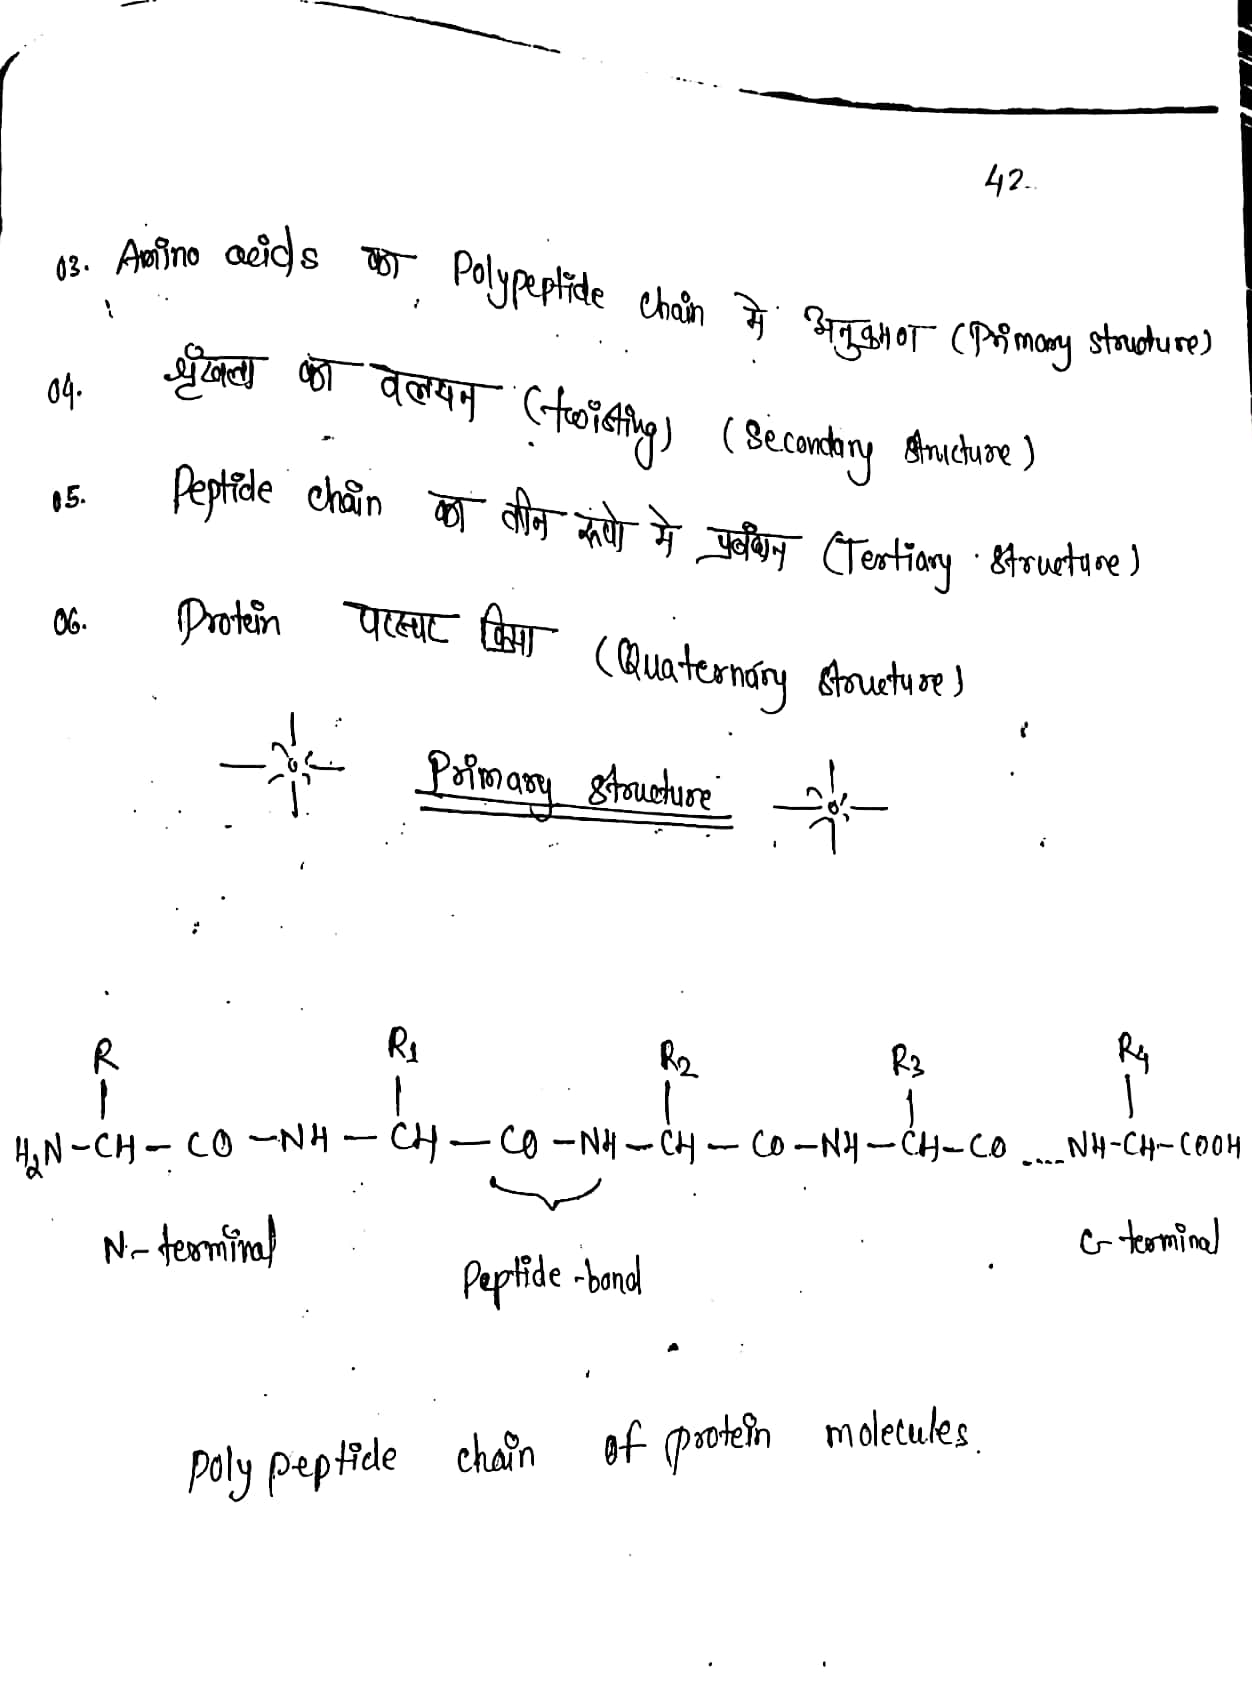 42
03. Amino acids का Polypeptide chain में अनुक्रमण (Primary structure)
04. श्रृंखला का वलयन (twisting) (Secondary structure)
05. Peptide chain का तीन रूपो मे प्रबंधन (Tertiary structure)
06. Protein परस्पर क्रिया (Quaternary structure)
Primary structure
R R1 R2 R3 R4
H2N-CH-CO-NH-CH-CO-NH-CH-CO-NH-CH-CO....NH-CH-COOH
N-terminal C-terminal
Peptide-bond
Polypeptide chain of protein molecules.